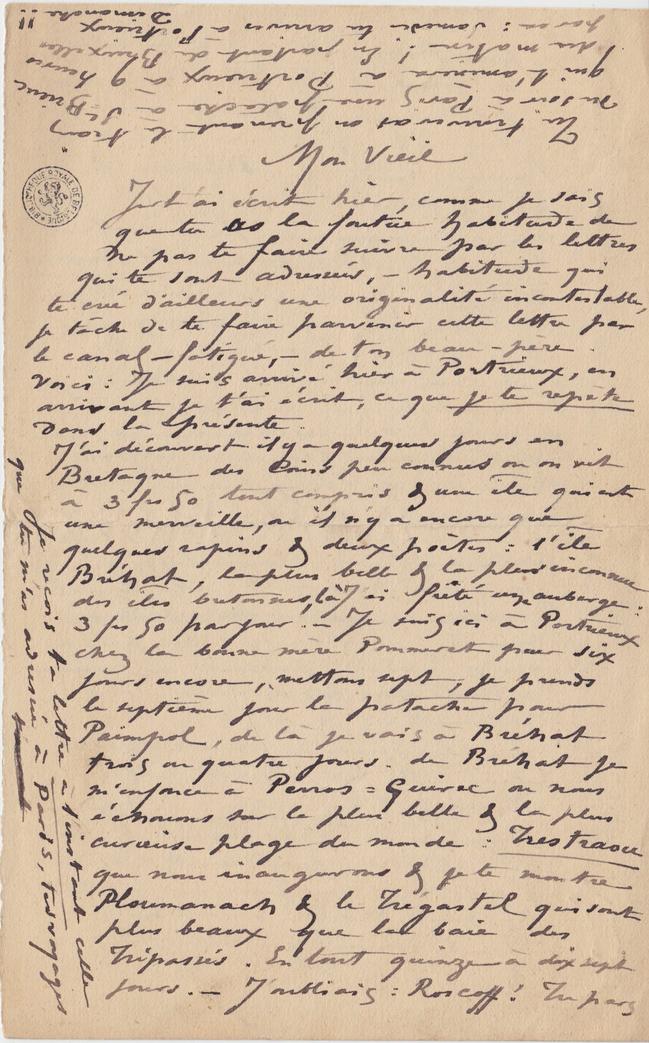 Mon Vieil
Je t'ai écrit hier, comme je sais
que tu as la foutue habitude de
ne pas te faire suivre par les lettres
qui te sont adressées, – habitude qui
te crée d'ailleurs une originalité incontestable,
je tâche de te faire parvenir cette lettre par
le canal – fatigué, – de ton beau-père.
Voici : Je suis arrivé hier à Portrieux, en
arrivant je t'ai écrit, ce que je te répète
dans la présente.
J'ai découvert il y a quelques jours en
Bretagne des coins peu connus où on vit
à 3 frs 50 tout compris & une île qui est
une merveille, où il n'y a encore que
quelques rapins & deux poètes : l'île
Bréhat, la plus belle & la plus inconnue
des îles bretonnes, là j'ai frété une auberge :
3 frs 50 par jour. – Je suis ici à Portrieux
chez la bonne mère Pommeret pour six
jours encore, mettons sept, je prends
le septième jour la patache pour
Paimpol, de là je vais à Bréhat
trois ou quatre jours. de Bréhat je
m'enfonce à Perros=Guirec où nous
échouons sur la plus belle & la plus
curieuse plage du monde : Trestraou
que nous inaugurons & je te montre
Ploumanach & le Trégastel qui sont
plus beaux que la baie des
Trépassés. En tout quinze à dix sept
jours. – J'oubliais : Roscoff ! Tu pars
Je reçois ta lettre à l'instant celle
que tu m'as adressée à Paris, tu voyages
Tu trouveras en prenant le train
du soir à Paris une patache à St-Brieuc
qui t'amènera à Portrieux à 9 heures
du matin ! En partant de Bruxelles
par ex : samedi tu arrives à Portrieux
Dimanche !!
BIBLIOTHÈQUE ROYALE DE BELGIQUE